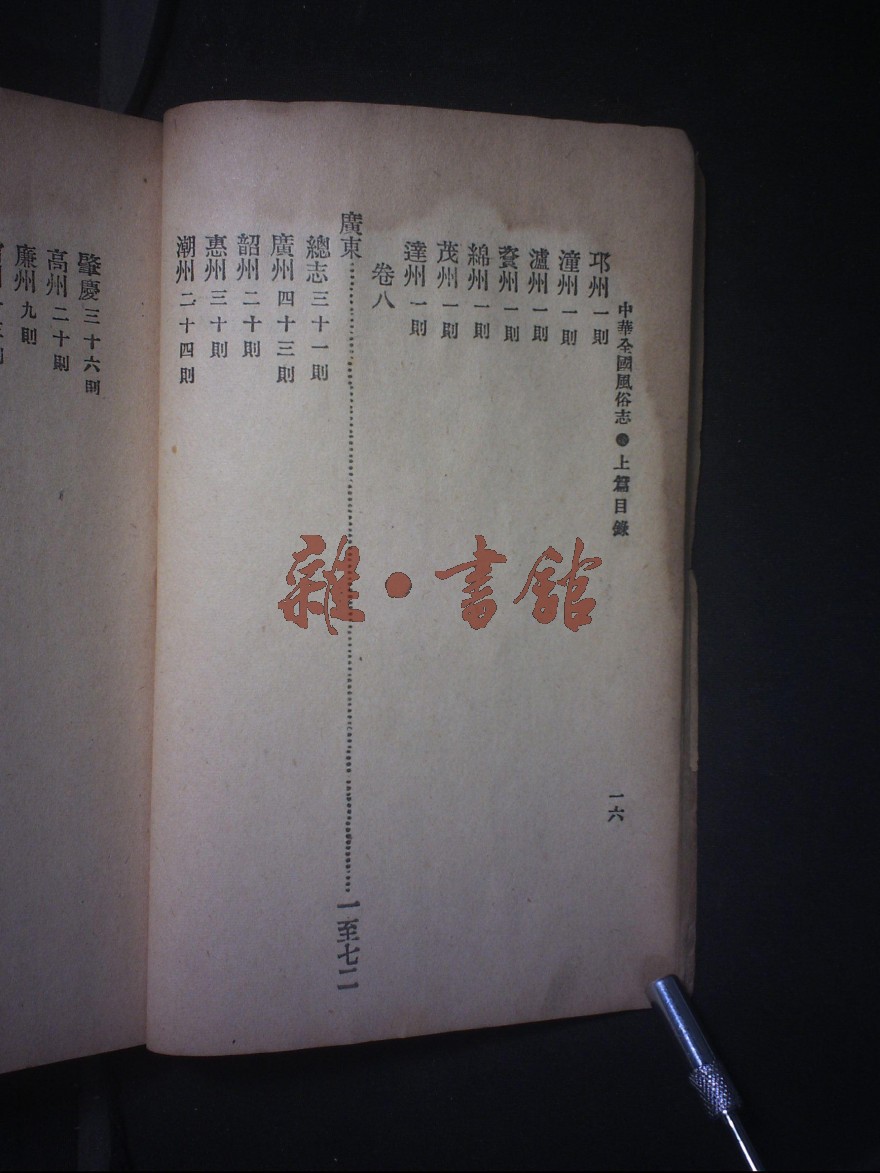 中華全國風俗志 ● 上篇目錄
一六
邛州 一則
潼州 一則
瀘州 一則
資州 一則
綿州 一則
茂州 一則
達州 一則
卷八
廣東……一至七二
總志 三十一則
廣州 四十三則
韶州 二十則
惠州 三十則
潮州 二十四則
肇慶 三十六則
高州 二十則
廉州 九則
雜·書館